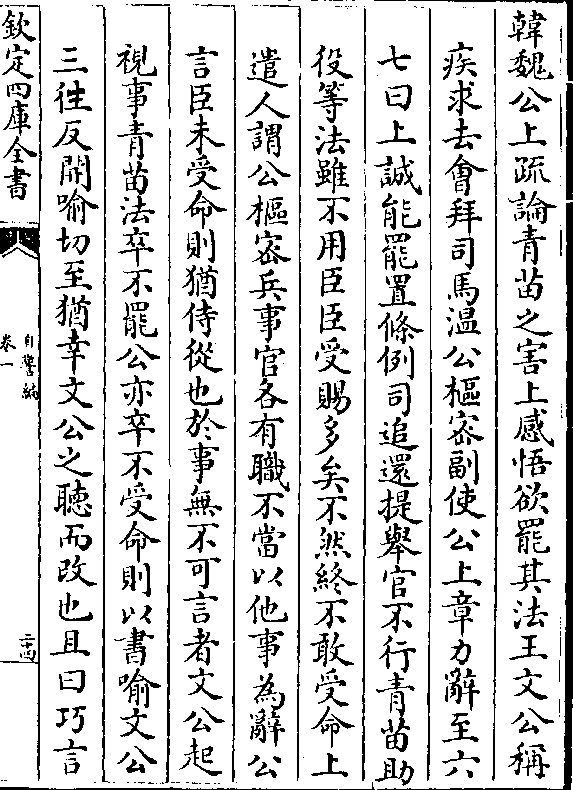 韓魏公上疏論青苗之害上感悟欲罷其法王文公稱
疾求去會拜司馬温公樞密副使公上章力辭至六
七曰上誠能罷置條例司追還提舉官不行青苗助
役等法雖不用臣臣受賜多矣不然終不敢受命上
遣人謂公樞密兵事官各有職不當以他事為辭公
言臣未受命則猶侍從也於事無不可言者文公起
視事青苗法卒不罷公亦卒不受命則以書喻文公
三徃反開喻切至猶幸文公之聴而改也且曰巧言
欽定四庫全書
自警編
卷一
二十四